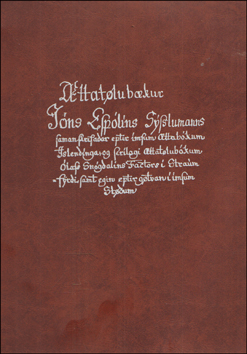 Ættatølubækur
Jóns Espólíns Sýslumanns
samanskrifadar eptir ímsum Ættabókum
Íslendínga og serílagi Ættatølubókum
Ólafs Snógdalíns Factors í Straum
firdi samt egin eptirgötvan í ímsum
Stødum